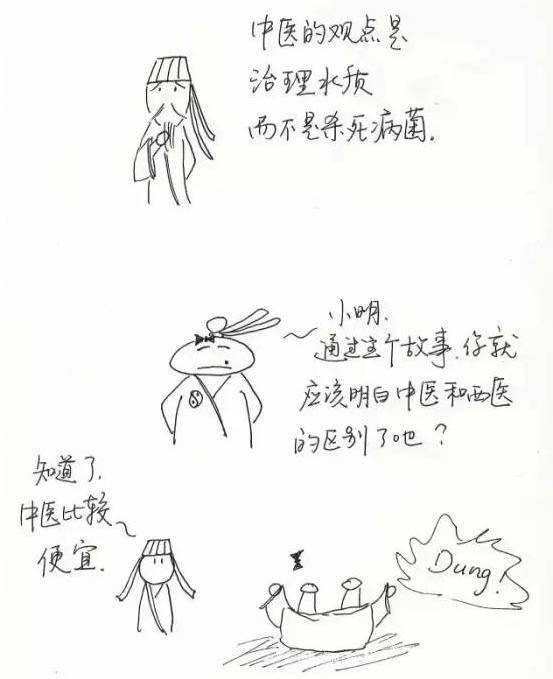 中医的观点是
治理水质
而不是杀死病菌.
小明.
通过这个故事.你就
应该明白中医和西医
的区别了吧？
知道了.
中医比较
便宜.
Dung!